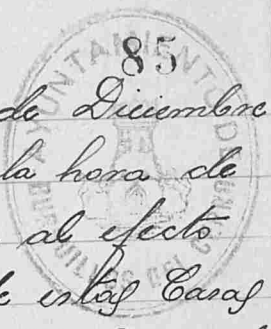 85
de Diciembre
la hora de
al efecto
de estas Casas
AYUNTAMIENTO DE